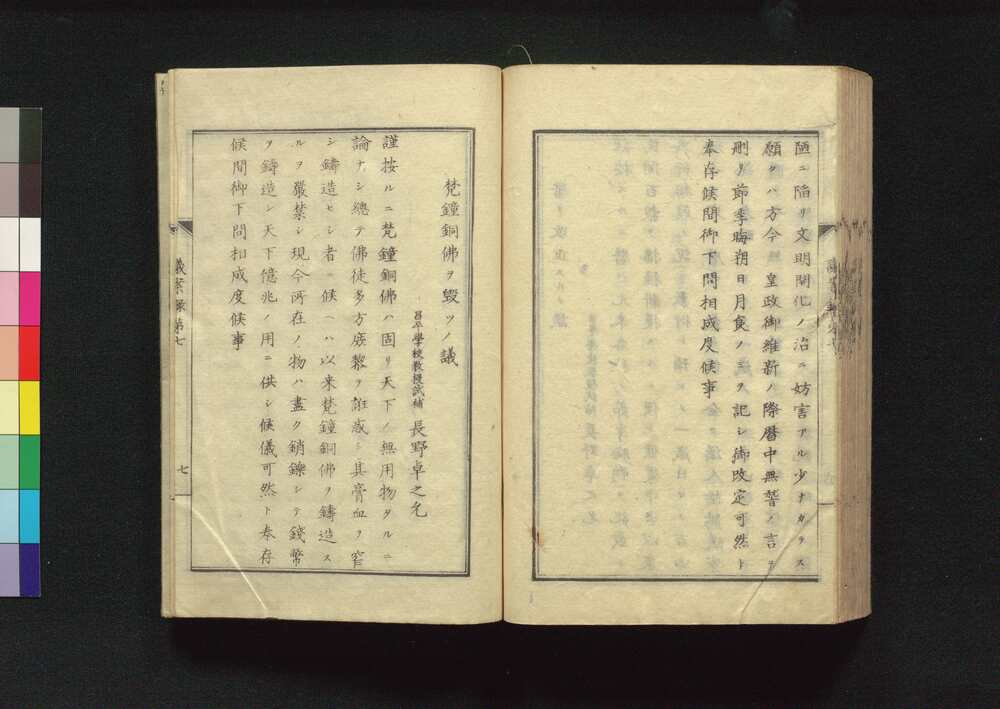 陋ニ陷リ文明開化ノ治ニ妨害アル少ナカラス
願クハ方今 皇政御維新ノ際暦中無誓ノ言ヲ
刪リ節季晦朔日月食ノミヲ記シ御改定可然ト
奉存候間御下問相成度候事
梵鐘銅佛ヲ毀ツノ議
昌平學校教授試補 長野卓之允
謹按ルニ梵鐘銅佛ハ固リ天下ノ無用物タルニ
論ナシ總テ佛徒多方庶黎ヲ誑惑シ其膏血ヲ窄
シ鑄造セシ者ニ候ヘハ以来梵鐘銅佛ヲ鑄造ス
ルヲ嚴禁シ現今所在ノ物ハ盡ク銷鑠シテ錢幣
ヲ鑄造シ天下億兆ノ用ニ供シ候儀可然ト奉存
候間御下問相成度候事
議案録第七
七